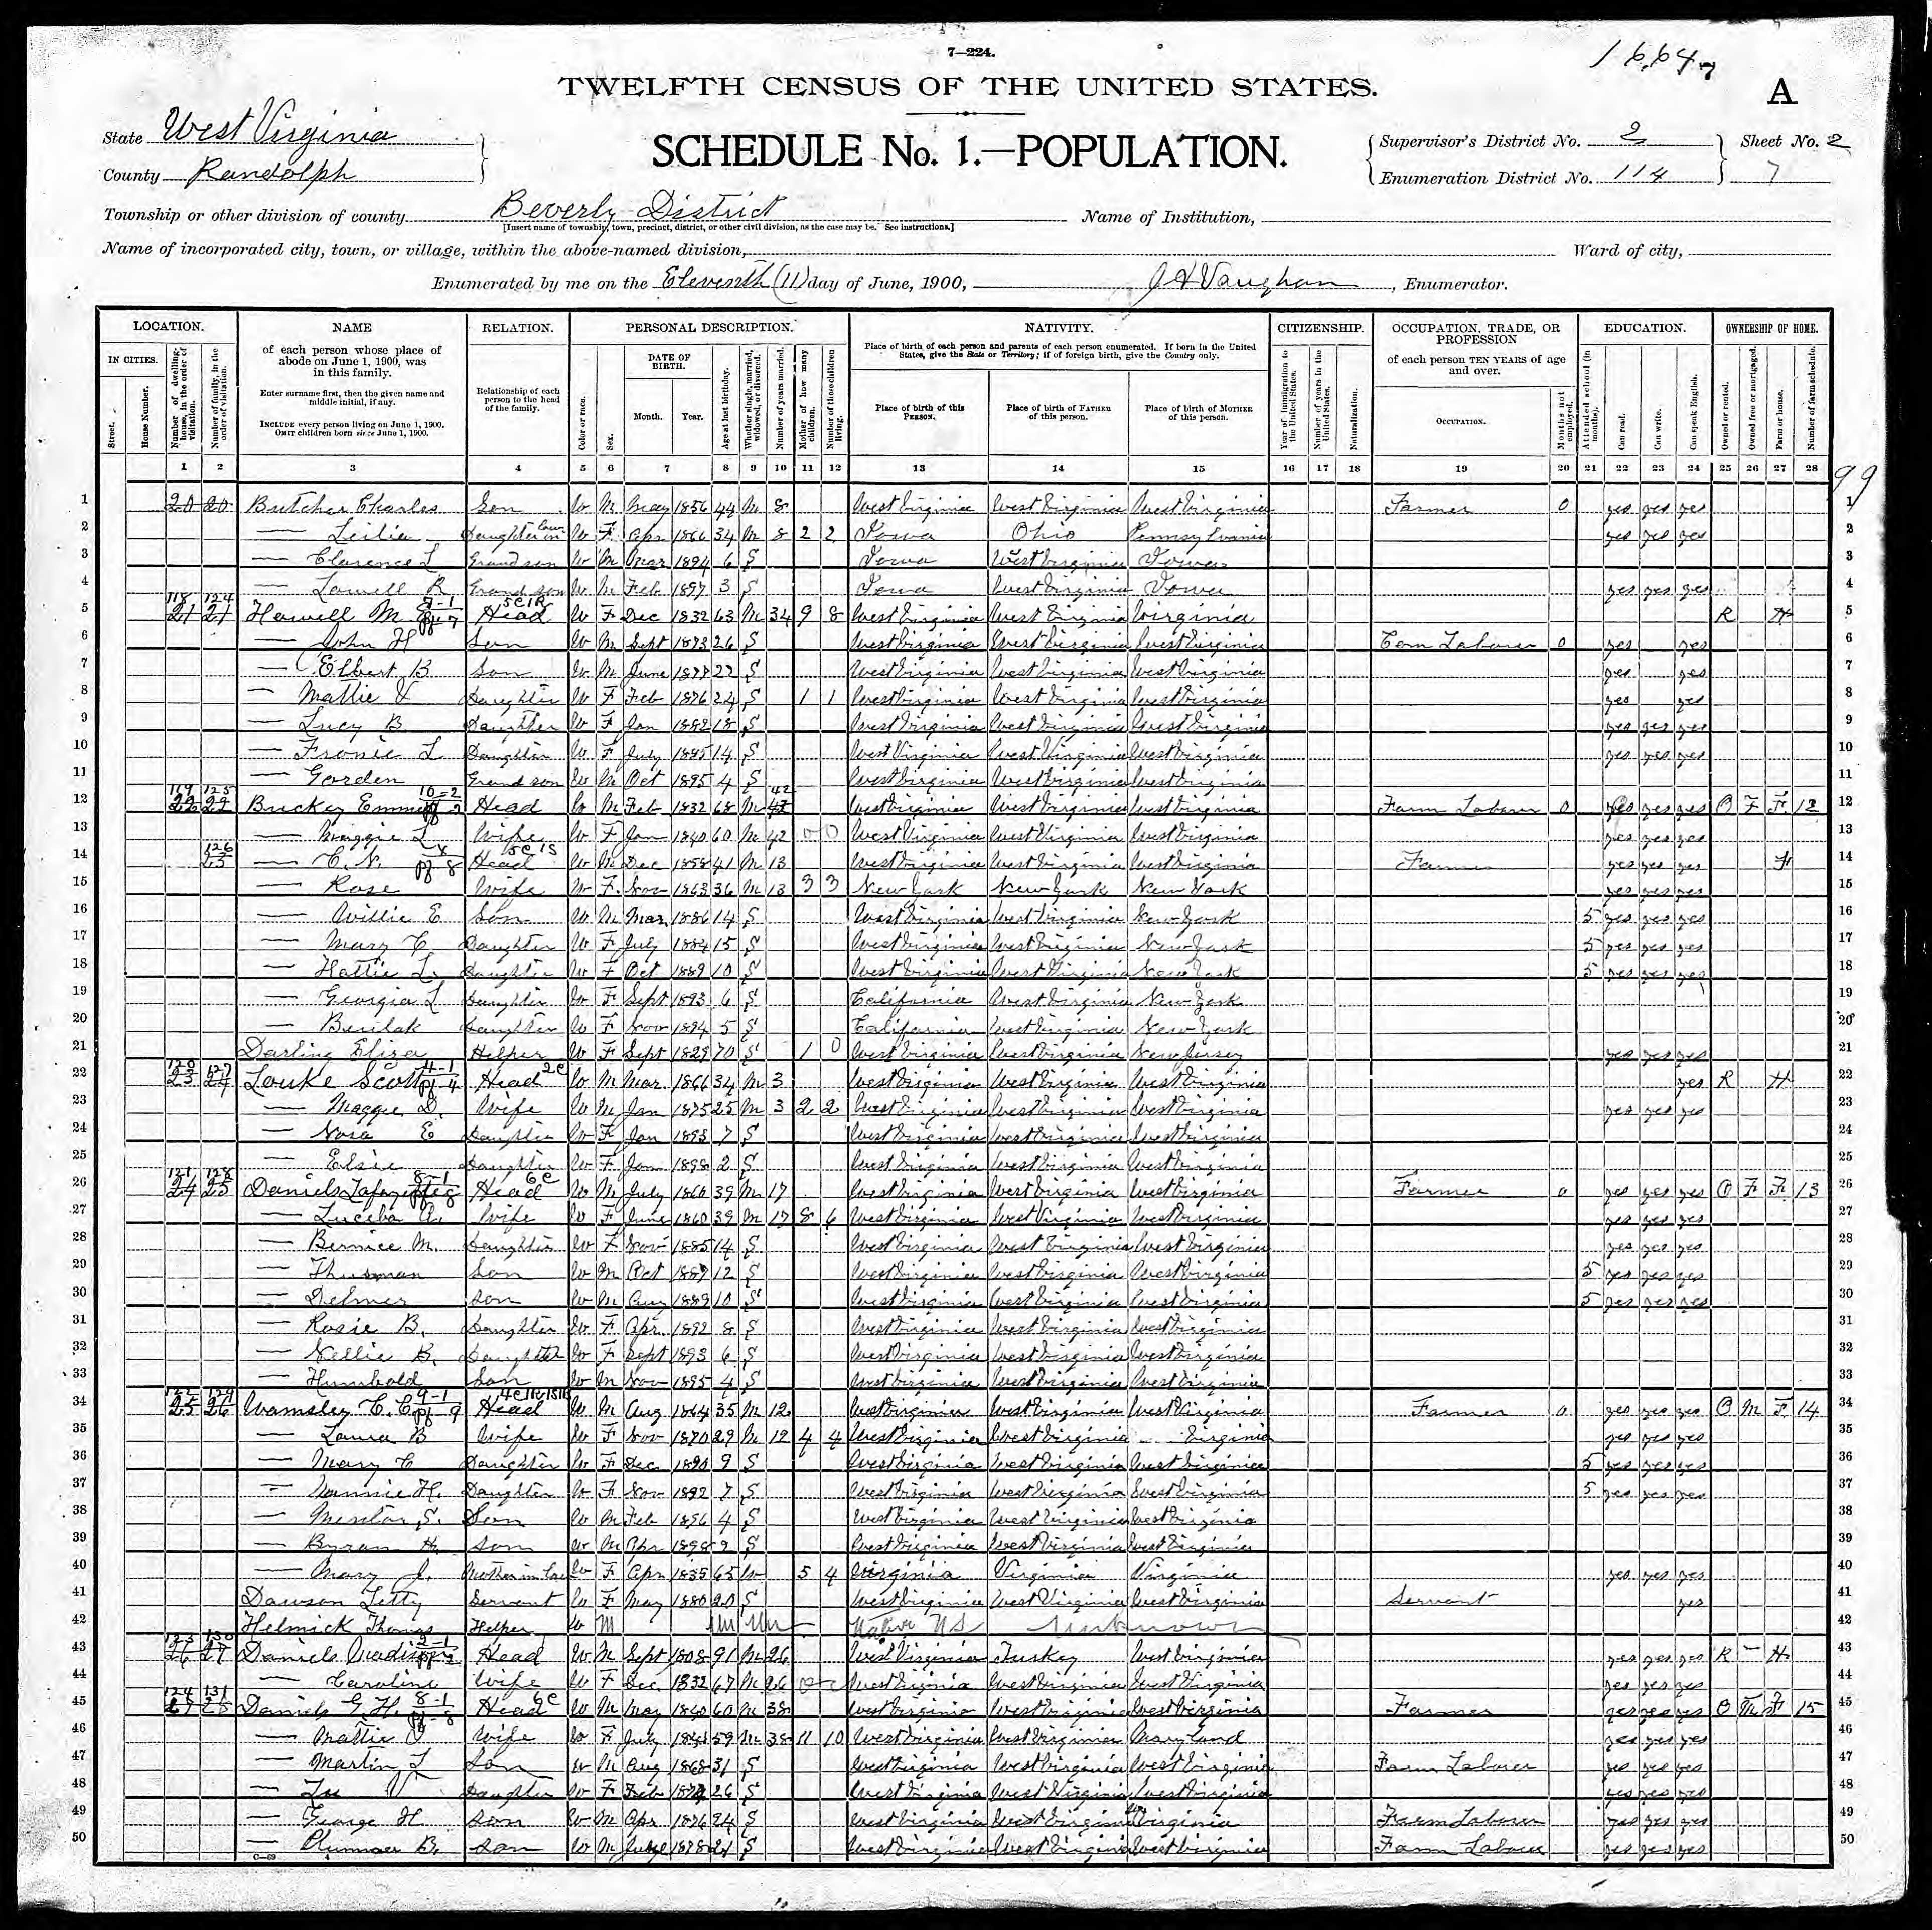 7—224.
1664
TWELFTH CENSUS OF THE UNITED STATES.
A
State West Virginia
County Randolph
SCHEDULE No. 1.—POPULATION.
Supervisor's District No. 2
Enumeration District No. 114
Sheet No. 2
7
Township or other division of county Beverly District
[Insert name of township, town, precinct, district, or other civil division, as the case may be. See instructions.]
Name of Institution,
Name of incorporated city, town, or village, within the above-named division,
Ward of city,
Enumerated by me on the Eleventh (11) day of June, 1900, Vaughan, Enumerator.
LOCATION. NAME RELATION. PERSONAL DESCRIPTION. NATIVITY. CITIZENSHIP. OCCUPATION, TRADE, OR PROFESSION EDUCATION. OWNERSHIP OF HOME.
IN CITIES.
Street.
House Number.
Number of dwelling-house, in the order of visitation.
Number of family, in the order of visitation.
of each person whose place of abode on June 1, 1900, was in this family.
Enter surname first, then the given name and middle initial, if any.
INCLUDE every person living on June 1, 1900.
OMIT children born since June 1, 1900.
Relationship of each person to the head of the family.
Color or race.
Sex.
DATE OF BIRTH.
Month. Year.
Age at last birthday.
Whether single, married, widowed, or divorced.
Number of years married.
Mother of how many children.
Number of these children living.
Place of birth of each person and parents of each person enumerated. If born in the United States, give the State or Territory; if of foreign birth, give the Country only.
Place of birth of this PERSON.
Place of birth of FATHER of this person.
Place of birth of MOTHER of this person.
Year of immigration to the United States.
Number of years in the United States.
Naturalization.
of each person TEN YEARS of age and over.
OCCUPATION.
Months not employed.
Attended school (in months).
Can read.
Can write.
Can speak English.
Owned or rented.
Owned free or mortgaged.
Farm or house.
Number of farm schedule.
1 2 3 4 5 6 7 8 9 10 11 12 13 14 15 16 17 18 19 20 21 22 23 24 25 26 27 28
99
1 20 20 Butcher Charles Son W M May 1856 44 M 8 West Virginia West Virginia West Virginia Farmer 0 yes yes yes 1
2 — Leilia Daughter in law W F Apr 1866 34 M 8 2 2 Iowa Ohio Pennsylvania yes yes yes 2
3 — Clarence L Grandson W M Mar 1894 6 S Iowa West Virginia Iowa 3
4 — Lowell R Grand son W M Feb 1897 3 S Iowa West Virginia Iowa yes yes yes 4
5 21 21 Howell M Head W F Dec 1832 63 M 34 9 8 West Virginia West Virginia Virginia R H 5
6 — John H Son W M Sept 1873 26 S West Virginia West Virginia West Virginia Laborer 0 yes yes 6
7 — Elbert B Son W M June 22 S West Virginia West Virginia West Virginia yes yes 7
8 — Mattie Daughter W F Feb 1876 24 S 1 1 West Virginia West Virginia West Virginia yes yes 8
9 — Lucy B Daughter W F Jan 1882 18 S West Virginia West Virginia West Virginia yes yes yes 9
10 — Fronie L Daughter W F July 1885 14 S West Virginia West Virginia West Virginia yes yes yes 10
11 — Gorden Grand son W M Oct 1895 4 S West Virginia West Virginia West Virginia 11
12 22 22 Buckey Head W M Feb 1832 68 M 42 West Virginia West Virginia West Virginia Farm Laborer 0 yes yes yes O F F 12 12
13 — Maggie L Wife W F Jan 1840 60 M 42 0 0 West Virginia West Virginia West Virginia yes yes yes 13
14 23 — C. N. Head W M Dec 1858 41 M 13 West Virginia West Virginia West Virginia Farmer yes yes yes H 14
15 — Rose Wife W F Nov 1863 36 M 13 3 3 New York New York New York yes yes yes 15
16 — Willie E Son W M Mar 1886 14 S West Virginia West Virginia New York 5 yes yes yes 16
17 — Mary C Daughter W F July 1884 15 S West Virginia West Virginia New York 5 yes yes yes 17
18 — Hattie L. Daughter W F Oct 1889 10 S West Virginia West Virginia New York 5 yes yes yes 18
19 — Georgia L Daughter W F Sept 1893 6 S California West Virginia New York 19
20 — Daughter W F Nov 1894 5 S California West Virginia New York 20
21 Darling Eliza Helper W F Sept 1829 70 S 1 0 West Virginia West Virginia New Jersey yes yes yes 21
22 23 24 Louke Scott Head W M Mar 1866 34 M 3 West Virginia West Virginia West Virginia yes R H 22
23 — Maggie D. Wife W M Jan 1875 25 M 3 2 2 West Virginia West Virginia West Virginia yes yes yes 23
24 — Nora E Daughter W F Jan 1893 7 S West Virginia West Virginia West Virginia 24
25 — Elsie Daughter W F Jan 1898 2 S West Virginia West Virginia West Virginia 25
26 24 25 Daniels Head W M July 1860 39 M 17 West Virginia West Virginia West Virginia Farmer 0 yes yes yes O F F 13 26
27 — Wife W F June 1860 39 M 17 8 6 West Virginia West Virginia West Virginia yes yes yes 27
28 — Bernice M. Daughter W F Nov 1885 14 S West Virginia West Virginia West Virginia yes yes yes 28
29 — Thurman Son W M Oct 1887 12 S West Virginia West Virginia West Virginia 5 yes yes yes 29
30 — Delmer Son W M Aug 1889 10 S West Virginia West Virginia West Virginia 5 yes yes yes 30
31 — Rosie B. Daughter W F Apr. 1892 8 S West Virginia West Virginia West Virginia 31
32 — Nellie B. Daughter W F Sept 1893 6 S West Virginia West Virginia West Virginia 32
33 — Humbold Son W M Nov 1895 4 S West Virginia West Virginia West Virginia 33
34 25 26 Wamsley C. C. Head W M Aug 1864 35 M 12 West Virginia West Virginia West Virginia Farmer 0 yes yes yes O M F 14 34
35 — Laura B Wife W F Nov 1870 29 M 12 4 4 West Virginia West Virginia Virginia yes yes yes 35
36 — Mary C Daughter W F Dec 1890 9 S West Virginia West Virginia West Virginia 5 yes yes yes 36
37 — Nannie H. Daughter W F Nov 1892 7 S West Virginia West Virginia West Virginia 5 yes yes yes 37
38 — S. Son W M Feb 1896 4 S West Virginia West Virginia West Virginia 38
39 — Byran H. Son W M Apr 1898 2 S West Virginia West Virginia West Virginia 39
40 — Mary J. Mother in law W F Apr 1835 65 W 5 4 Virginia Virginia Virginia yes yes yes 40
41 Dawson Letty Servant W F May 1880 20 S West Virginia West Virginia West Virginia Servant yes 41
42 Helmick Thomas Helper W M Un Un Native US Unknown 42
43 26 27 Daniels Madison Head W M Sept 1808 91 M 26 West Virginia Turkey West Virginia yes yes yes R — H 43
44 — Caroline Wife W F Dec 1832 67 M 26 0 West Virginia West Virginia West Virginia yes yes yes 44
45 27 28 Daniels G. H. Head W M May 1840 60 M 38 West Virginia West Virginia West Virginia Farmer yes yes yes O M F 15 45
46 — Mattie Wife W F July 59 M 38 11 10 West Virginia West Virginia Maryland yes yes yes 46
47 — Martin L Son W M Aug 1868 31 S West Virginia West Virginia West Virginia Farm Laborer yes yes yes 47
48 — Daughter W F Feb 26 S West Virginia West Virginia West Virginia yes yes yes 48
49 — George H Son W M Apr 1876 24 S West Virginia West Virginia Virginia Farm Laborer yes yes yes 49
50 — Plummer B. Son W M 1878 21 S West Virginia West Virginia West Virginia Farm Laborer yes yes yes 50